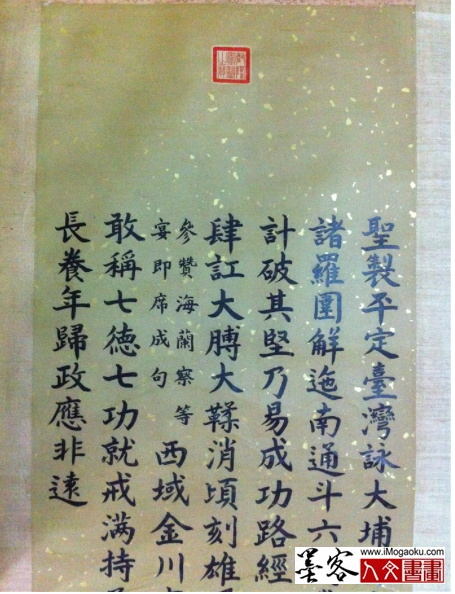 聖製平定臺灣詠大埔
諸羅圍解迤南通斗六
計破其堅乃易成功路經
肆訌大膊大鞣消頃刻雄
參贊海蘭察等
宴即席成句
西域金川
敢稱七德七功就戒滿持
長養年歸政應非遠
墨客
www.iMogaoku.com
人文書畫